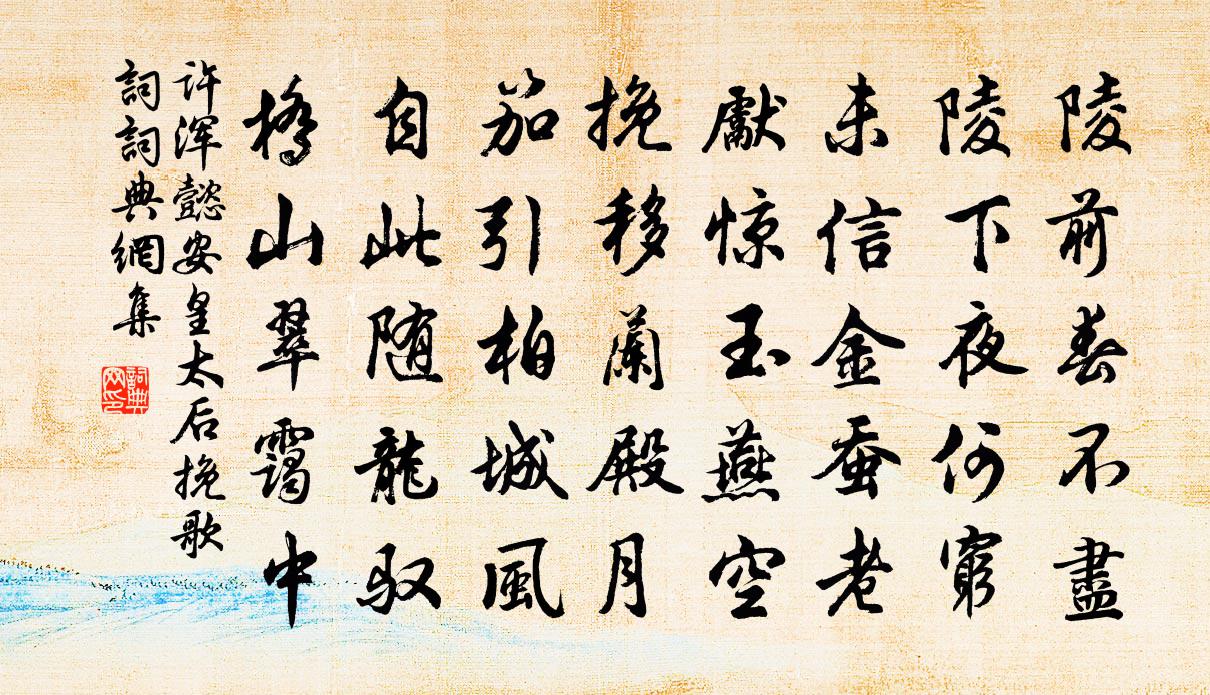 陵前春不盡
陵下夜何窮
未信金蚕老
獻惊玉燕空
挽移蘭殿月
笳引柏城風
自此随龍驭
橋山翠靄中
许浑懿安皇太后挽歌
詞詞典網集
詞典网印